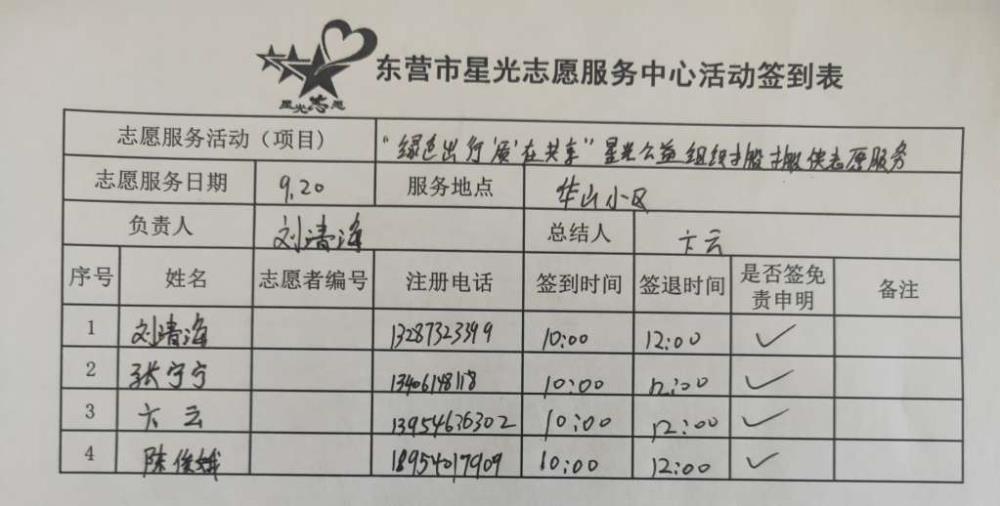 星光志愿
东营市星光志愿服务中心活动签到表
志愿服务活动（项目） "绿色出行 质在共享"星光公益组织 服务
志愿服务日期 9.20 服务地点 华山小区
负责人 刘清海 总结人 卞云
序号 姓名 志愿者编号 注册电话 签到时间 签退时间 是否签免责申明 备注
1 刘清海 13287323399 10:00 12:00 ✓
2 张宁宁 13406148118 10:00 12:00 ✓
3 卞云 13954636302 10:00 12:00 ✓
4 陈俊娥 18954017909 10:00 12:00 ✓